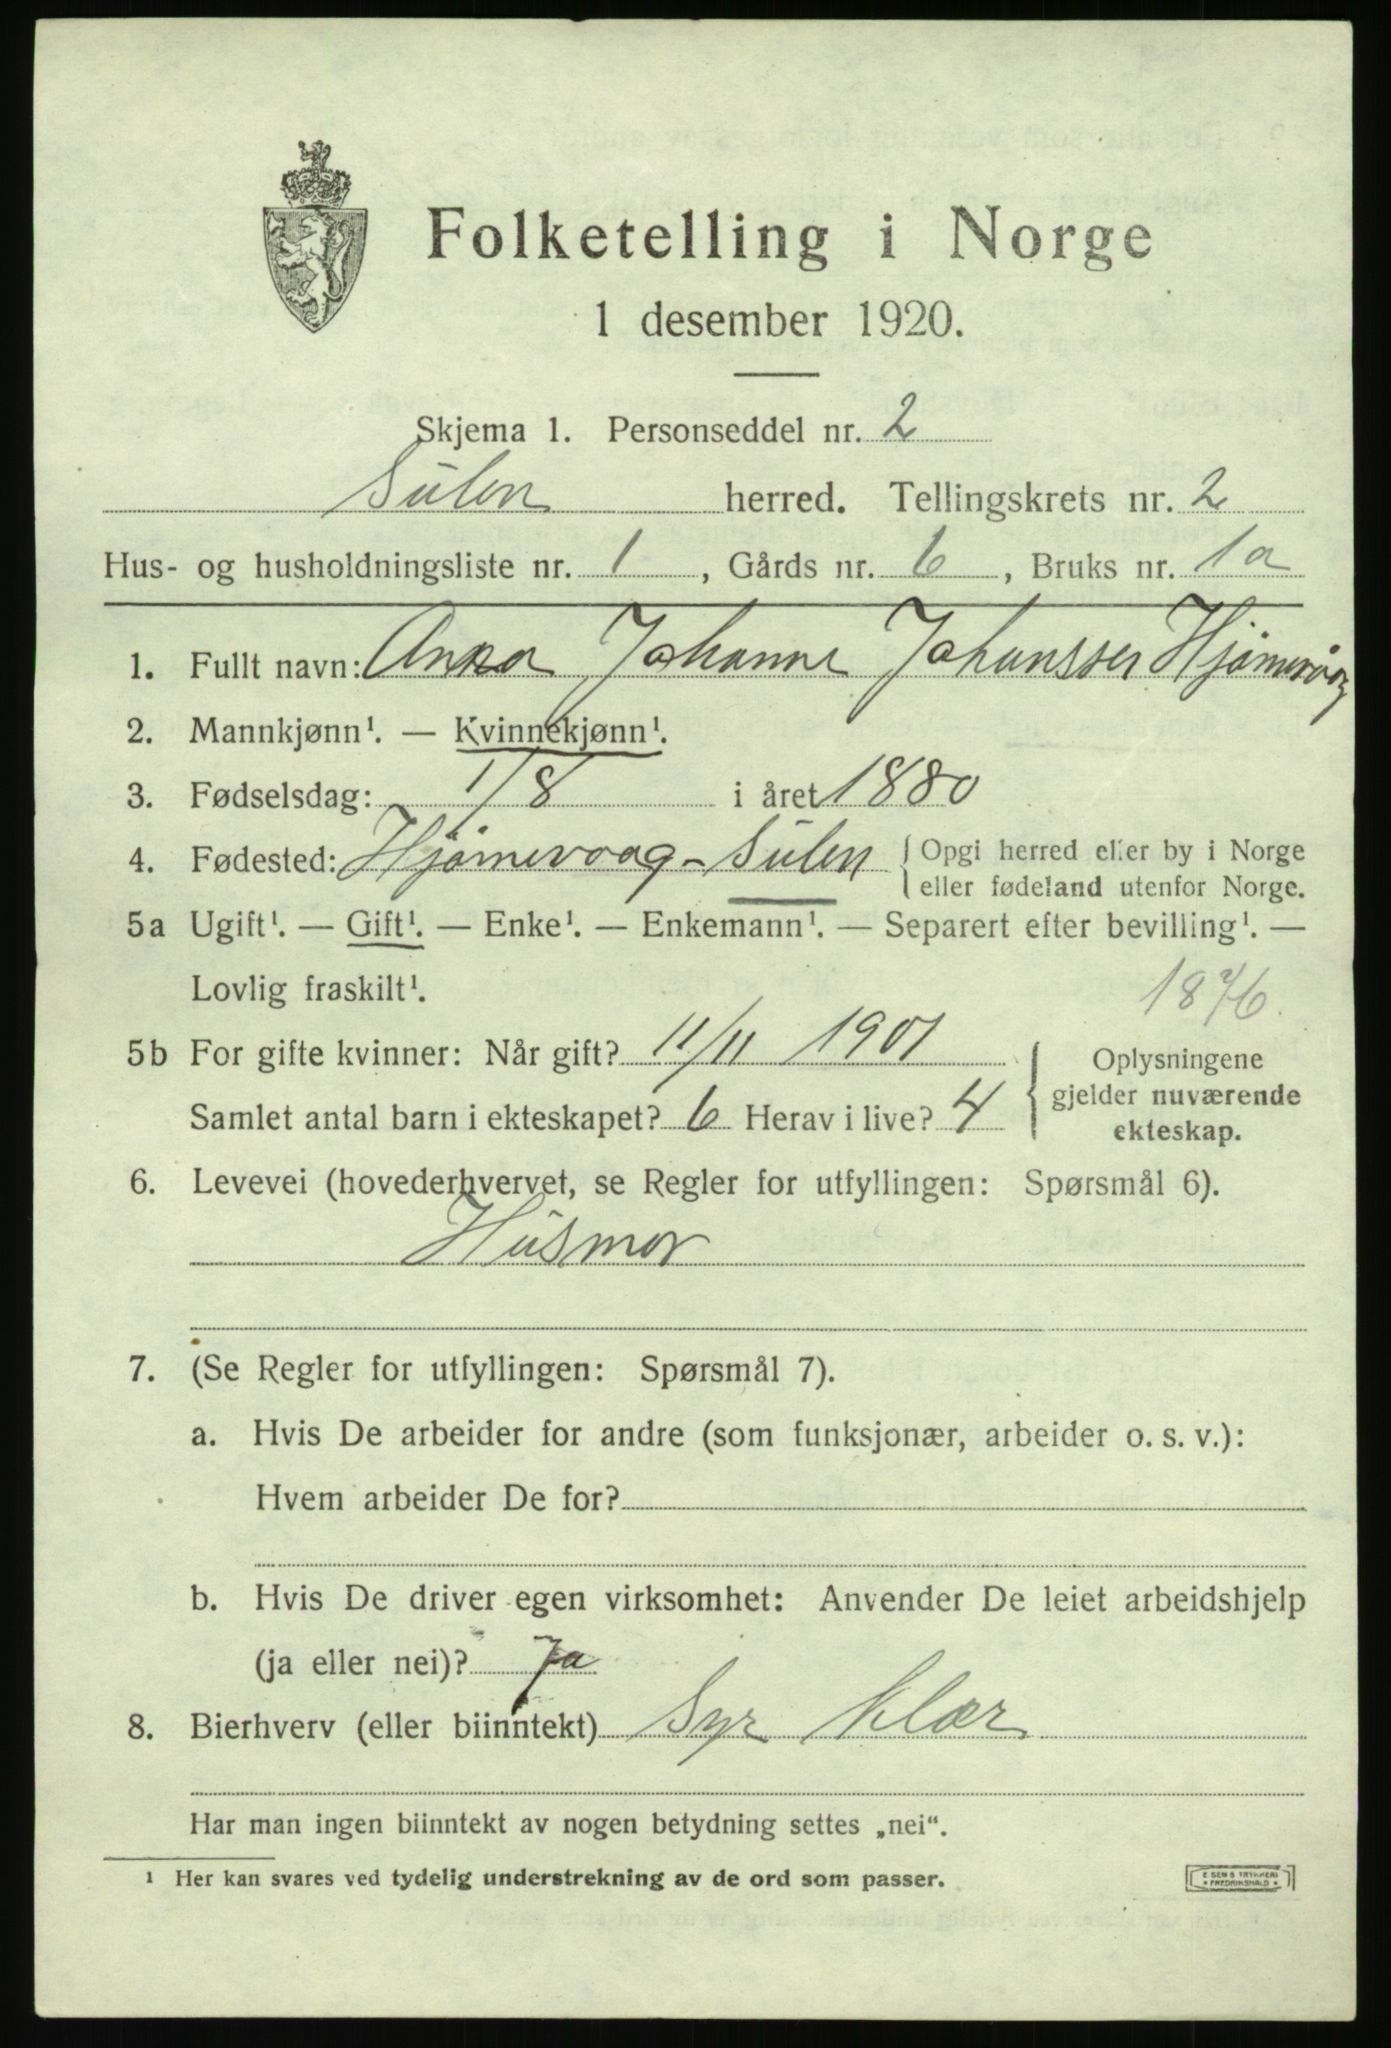 Folketelling i Norge
1 desember 1920.
Skjema 1. Personseddel nr. 2
Sülen herred. Tellingskrets nr. 2
Hus- og husholdningsliste nr. 1, Gårds nr. 6, Bruks nr. 1a
1. Fullt navn: Anna Johanne Johanssen Hjømevåg
2. Mannkjønn¹. — Kvinnekjønn¹.
3. Fødselsdag: 1/8 i året 1880
4. Fødested: Hjømevaag - Sülen { Opgi herred eller by i Norge
eller fødeland utenfor Norge.
5a Ugift¹. — Gift¹. — Enke¹. — Enkemann¹. — Separert efter bevilling¹. —
Lovlig fraskilt¹. 1876.
5b For gifte kvinner: Når gift? 11/11 1901 { Oplysningene
gjelder nuværende
Samlet antal barn i ekteskapet? 6 Herav i live? 4 ekteskap.
6. Levevei (hovederhvervet, se Regler for utfyllingen: Spørsmål 6).
Hüsmor
7. (Se Regler for utfyllingen: Spørsmål 7).
a. Hvis De arbeider for andre (som funksjonær, arbeider o. s. v.):
Hvem arbeider De for?
b. Hvis De driver egen virksomhet: Anvender De leiet arbeidshjelp
(ja eller nei)? Ja
8. Bierhverv (eller biinntekt) Syr klær
Har man ingen biinntekt av nogen betydning settes „nei“.
¹ Her kan svares ved tydelig understrekning av de ord som passer.
E SENS TRYKKERI
• FREDRIKSHALD •